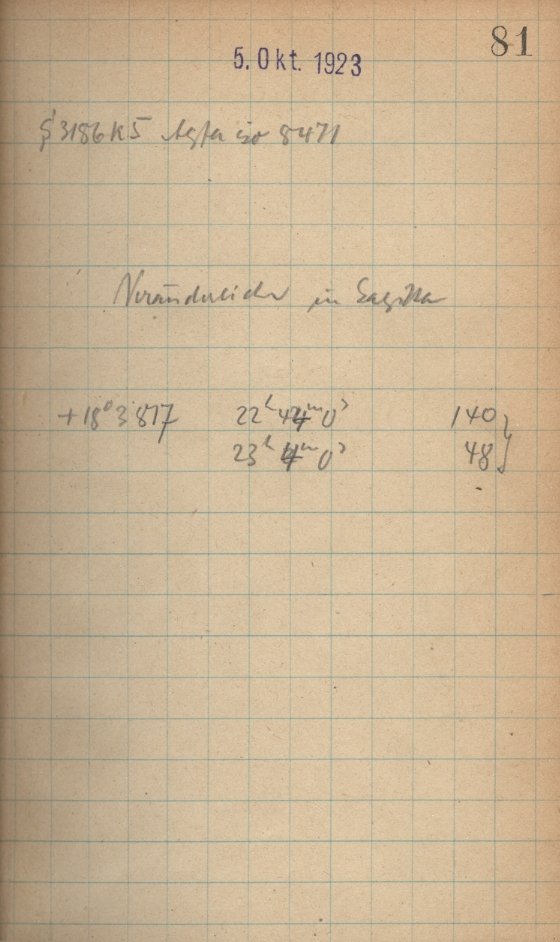 81
5. Okt. 1923
3186 K5 Agfa iso 8471
Veränderliche in Sagitta
+18° 3817 22ʰ 44ᵐ 0ˢ 140
23ʰ 4ᵐ 0ˢ 48